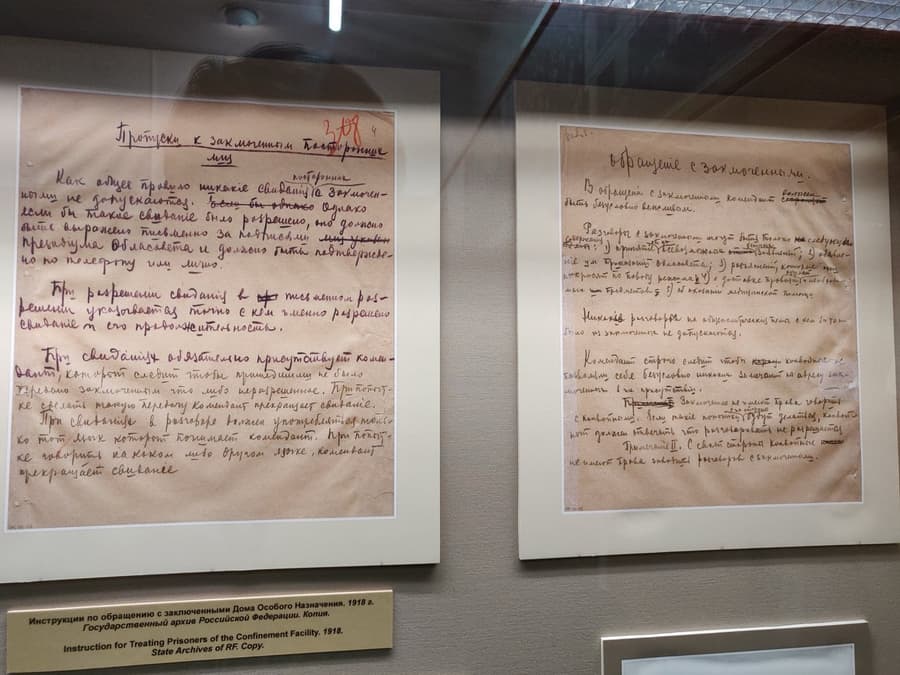 308
4
Пропуски к заключенным посторонние
лиц
посторонние
Как общее правило никакие свидания с заключен-
ными не допускаются. Если бы однако Однако
если бы такое свидание было разрешено, оно должно
быть выражено письменно за подписями
президиума Облсовета и должно быть подтвержде-
но по телефону или лично.
При разрешении свидания в письменном раз-
решении указывается точно с кем именно разрешено
свидание и его продолжительность.
При свиданиях обязательно присутствует комен-
дант, который следит чтобы пришедшими не было
передано заключенным что либо неразрешенное. При попыт-
ке сделать такую передачу комендант прекращает свидание.
При свиданиях в разговоре должен употребляться толь-
ко тот язык который понимает комендант. При попыт-
ке говорить на каком либо другом языке, комендант
прекращает свидание
обращение с заключенными.
В обращении с заключенными комендант
быть безусловно вежливым.
Разговоры с заключенными могут быть только следующие
Президиума Облсовета; 3)
5) об оказании медицинской помощи.
Никаких разговоров на общеполитические темы с кем бы то ни
было из заключенных не допускаются.
Комендант строго следит чтобы
позволяли себе безусловно никаких замечаний по адресу заклю-
ченных в их присутствии.
Заключенные не имеют права говорить
с конвойными. Если такие попытки будут делаться, конвой-
ный должен отвечать что разговаривать не разрешается
Примечание II. С своей стороны конвойные
не имеют права заводить разговоры с заключенными.
Инструкции по обращению с заключенными Дома Особого Назначения. 1918 г.
Государственный архив Российской Федерации. Копия.
Instruction for Treating Prisoners of the Confinement Facility. 1918.
State Archives of RF. Copy.